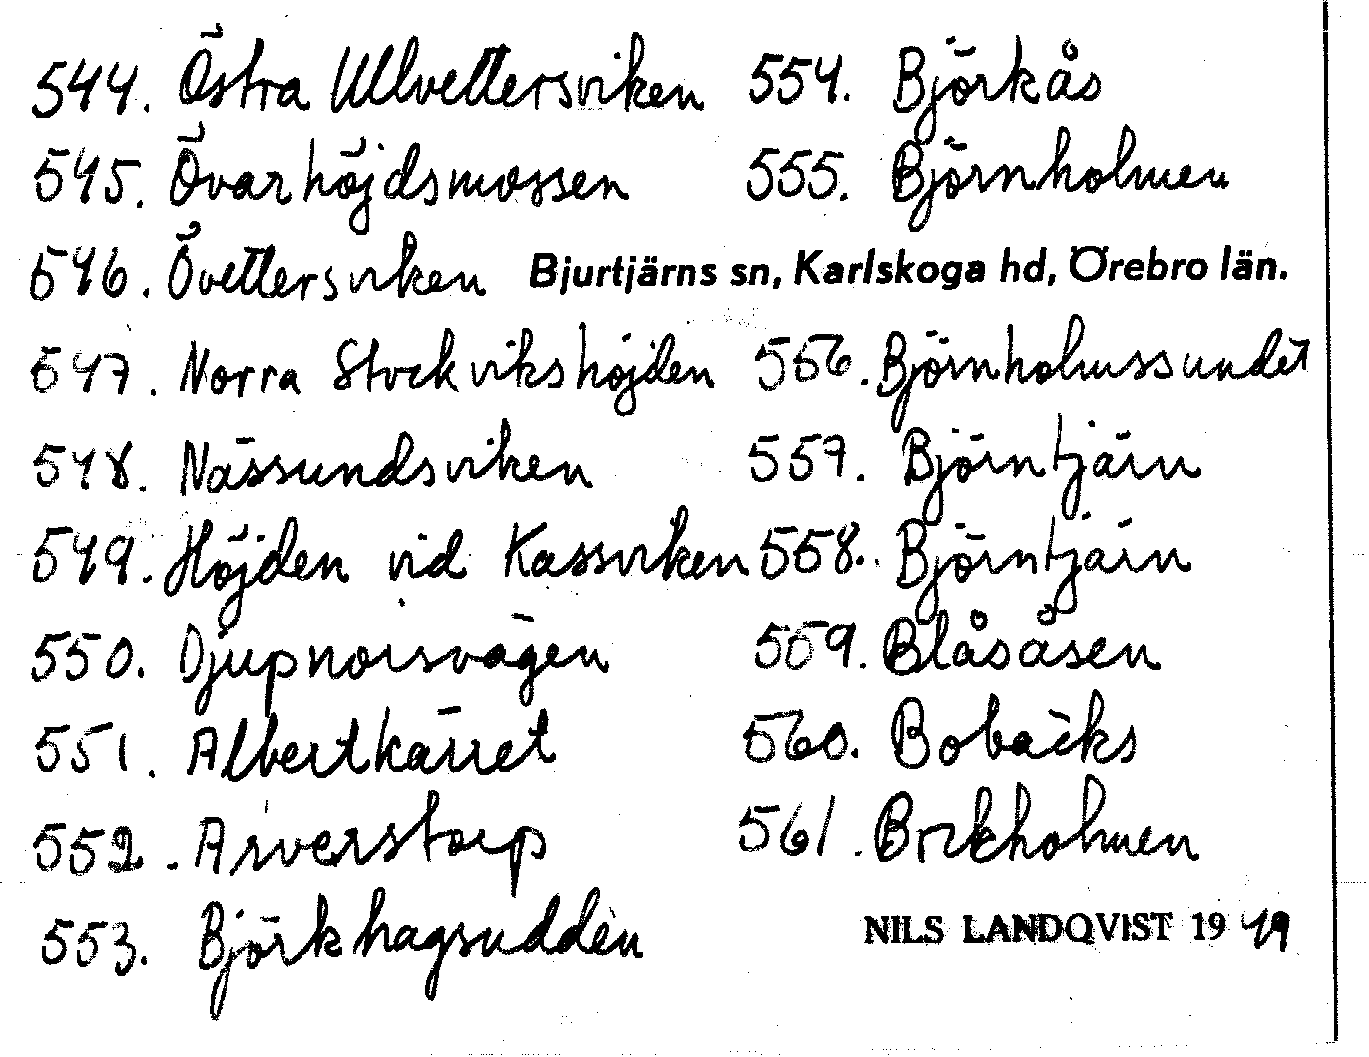 544. Östra Ullvettersviken
545. Övarhöjdsmossen
546. Övettersviken
547. Norra Stockvikshöjden
548. Nässundsviken
549. Höjden vid Kassviken
550. Djupnorsvägen
551. Albertkärret
552. Arverstorp
553. Björkhagsudden
554. Björkås
555. Björnholmen
Bjurtjärns sn, Karlskoga hd, Örebro län.
556. Björnholmssundet
557. Björntjärn
558. Björntjärn
559. Blåsåsen
560. Bobäcks
561. Bockholmen
NILS LANDQVIST 1949